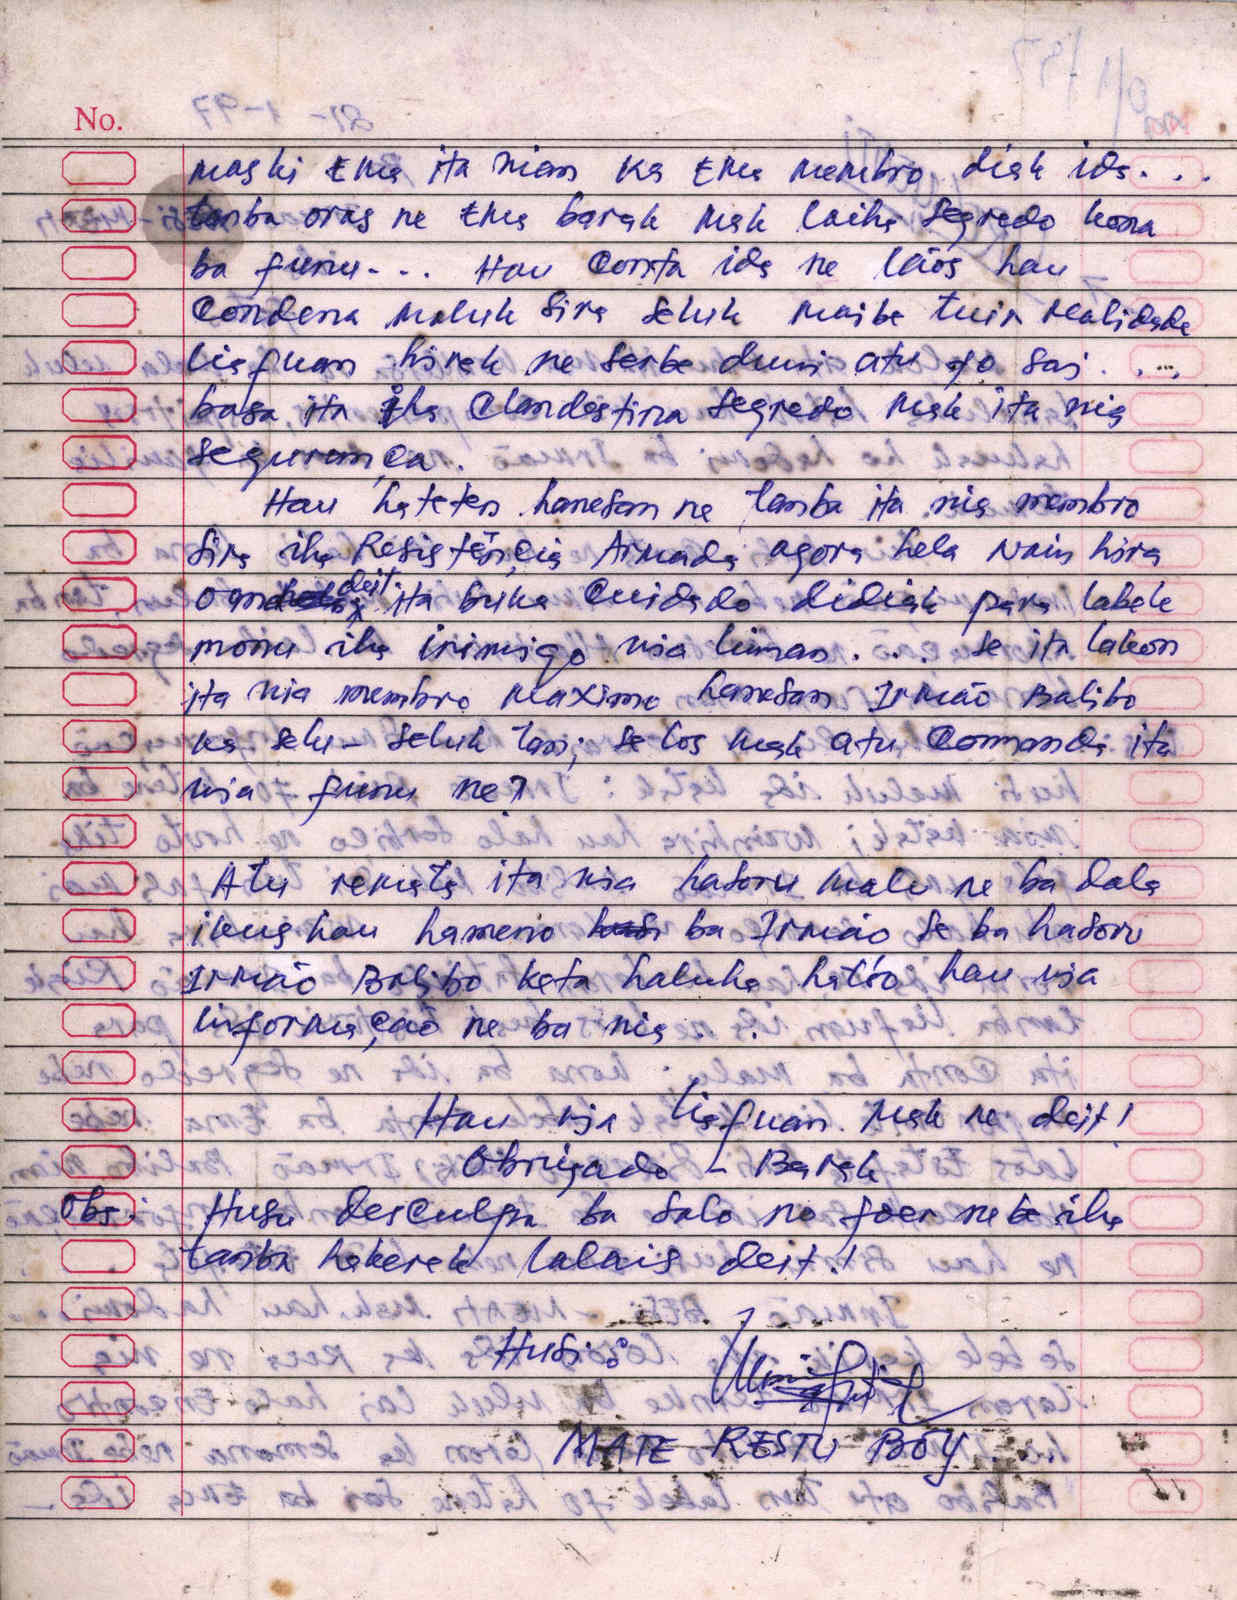 No.
maski ema ita nian ka ema membro diak ida...
tanba oras ne ema barak mak laiha segredo kona
ba funu... Hau Conta ida ne laós hau
Condena maluk sira seluk maibe tuir realidade
liafuan hirak ne serbe duni atu fo sai....
basa ita iha Clandestina segredo mak ita nia
segurança.
Hau hateten hanesan ne tanba ita nia membro
sira iha Resistência Armada agora hela nain hira
oan deit ita buka Cuidado didiak para labele
monu iha inimigo nia liman.... se ita lakon
ita nia membro maximo hanesan Irmão Balibo
ka selu-seluk tan; se los mak atu Comanda ita
nia funu ne?
Atu remata ita nia hasoru malu ne ba dala
ikus hau hameno ba Irmão se ba hasoru
Irmão Balibo keta haluha hatóo hau nia
informação ne ba nia.
Hau nia liafuan mak ne deit!
Obrigado - Barak
Obs: Husu desculpa ba salo no foer nebe iha
tanba hakerek lalais deit!
Husi:
MATE RESTU BOY